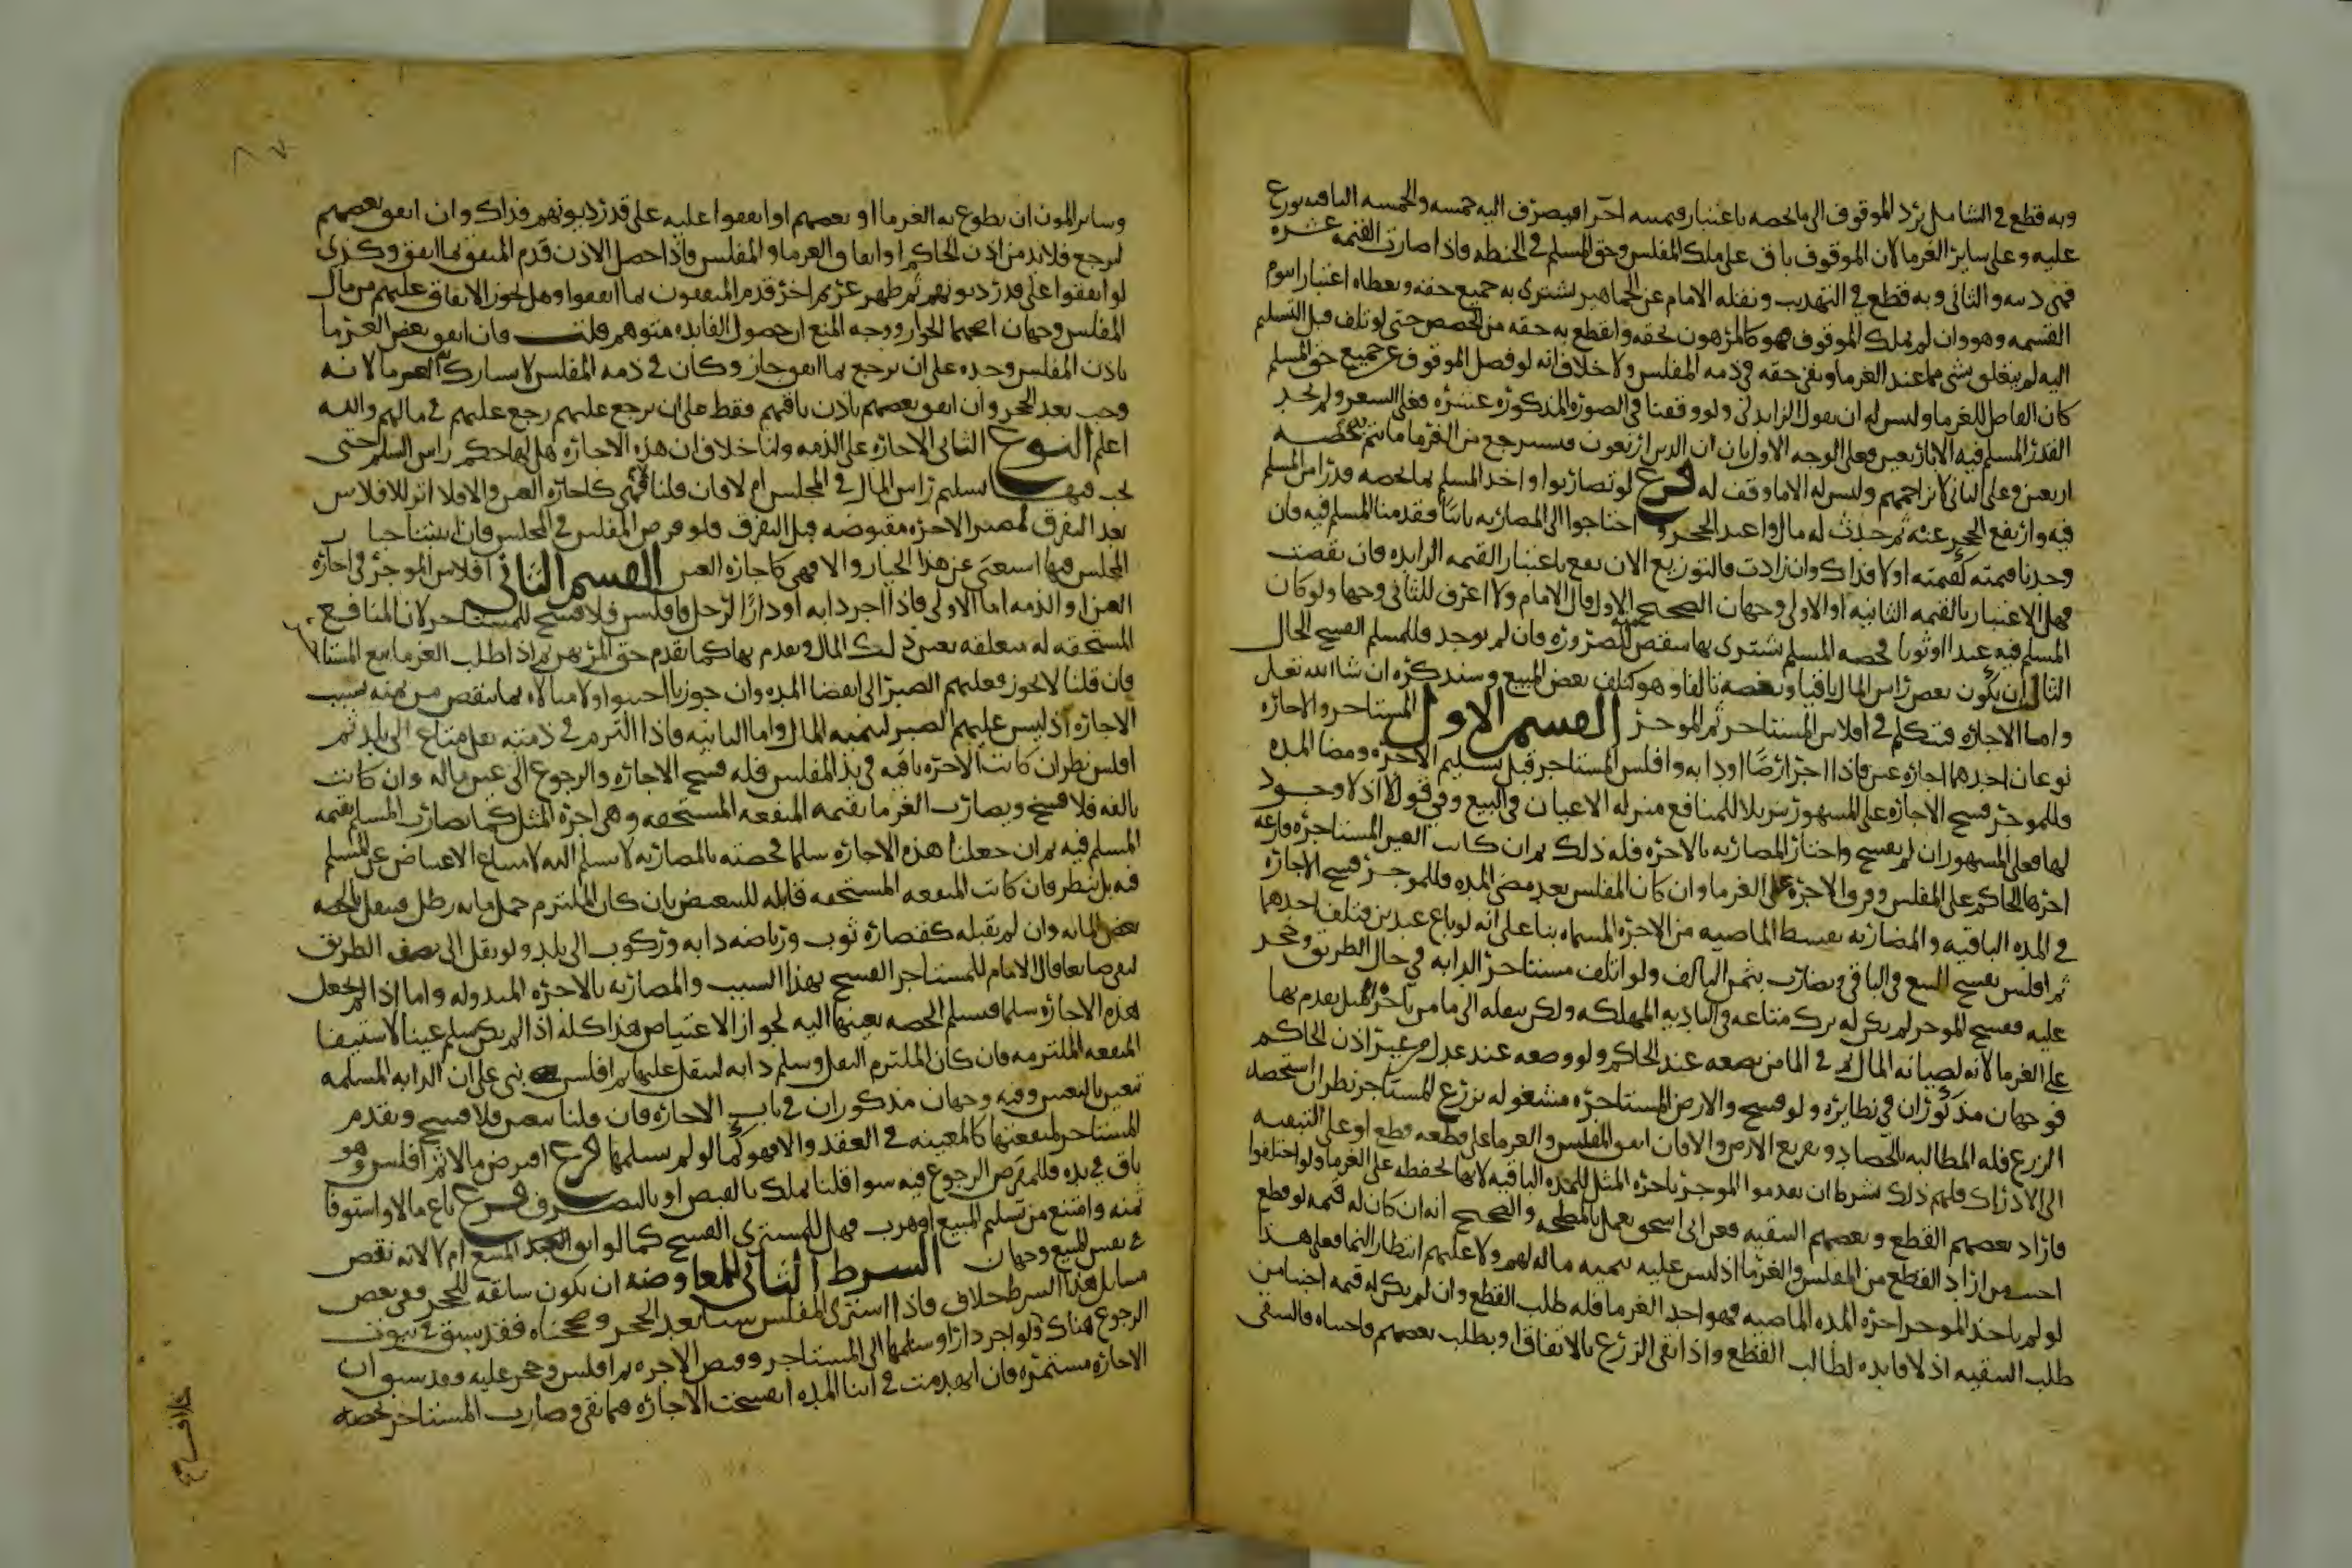 وبه قطع في الشامل يرد الموقوف الى ما يخصه باعتبار قيمته آخرا فيصرف اليه خمسه والخمسه الباقيه توزع
عليه وعلى ساير الغرما لان الموقوف باق على ملك المفلس وحق المسلم في الحنطه فاذا صارت القيمه عشره
فهي دينه والثاني وبه قطع في التهذيب ونقله الامام عن الجماهير يشترى به جميع حقه ويعطاه اعتبارا بيوم
القسمه وهو وان لم يملك الموقوف فهو كالمرهون بحقه وانقطع به حقه من الحصص حتى لو تلف قبل التسليم
اليه لم يتعلق بشي مما عند الغرما وبقى حقه في ذمه المفلس ولا خلاف انه لو فضل الموقوف عن جميع حق المسلم
كان الفاضل للغرما وليس له ان يقول الزايد لي ولو وقفنا في الصوره المذكوره عشره فغلى السعر ولم نجد
القدر المسلم فيه الا باربعين فعلى الوجه الاول بان ان الدين اربعون فيسترجع من الغرما ما تتم به حصه
اربعين وعلى الثاني لا يزاحمهم وليس له الا ما وقف له فرع لو تضاربوا واخذ المسلم بما يخصه قدرا من المسلم
فيه وارتفع الحجر عنه ثم حدث له مال واعيد الحجر واحتاجوا الى المضاربه ثانيا فقدمنا المسلم فيه فان
وجدنا قيمته كقيمته اولا فذاك وان زادت فالتوزيع الان يقع باعتبار القيمه الزايده فان نقصت
فهل الاعتبار بالقيمه الثانيه او الاولى وجهان الصحيح الاول قال الامام ولا اعرف للثاني وجها ولو كان
المسلم فيه عبدا او ثوبا فحصه المسلم يشترى بها شقص للضروره فان لم يوجد فللمسلم الفسح الحال
الثالث ان يكون بعض راس المال باقيا وبعضه تالفا وهو كتلف بعض المبيع وسنذكره ان شا الله تعلى
واما الاجاره فنتكلم في افلاس المستاجر ثم الموجر القسم الاول المستاجر والاجاره
نوعان احدهما اجاره عين فاذا اجر ارضا او دابه وافلس المستاجر قبل تسليم الاجره ومضا المده
فللموجر فسح الاجاره على المشهور تنزيلا للمنافع منزله الاعيان في البيع وفي قول لا اذ لا وجود
لها فعلى المشهور ان لم يفسح واختار المضاربه بالاجره فله ذلك ثم ان كانت العين المستاجره فارغه
اجرها الحاكم على المفلس وفرق الاجره على الغرما وان كان المفلس بعد مضي المده فللموجر فسح الاجاره
في المده الباقيه والمضاربه بقسط الماضيه من الاجره المسماه بنا على انه لو باع عبدين فتلف احدهما
ثم افلس يفسح البيع في الباقي ويضارب بثمن التالف ولو افلس مستاجر الدابه في حال الطريق وحجر
عليه ففسح الموجر لم يكن له ترك متاعه في الباديه المهلكه ولكن ينقله الى مامن باجر المثل يقدم بها
على الغرما لانه لصيانه المال ثم في المامن يضعه عند الحاكم ولو وضعه عند عدل من غير اذن الحاكم
فوجهان مذكوران في نظايره ولو فسح والارض المستاجره مشغوله بزرع المستاجر نظر ان استحصد
الزرع فله المطالبه بالحصاد وتفريغ الارض والا فان اتفق المفلس والغرما على قطعه قطع او على التبقيه
الى الادراك فلهم ذلك بشرط ان يقدموا الموجر باجره المثل للمده الباقيه لانها لحفظه على الغرما ولو اختلفوا
فاراد بعضهم القطع وبعضهم التبقيه فعن ابي اسحق يعمل بالمصلحه والصحيح انه ان كان له قيمه لو قطع
اجيب من اراد القطع من المفلس والغرما اذ ليس عليه تنميه ماله لهم ولا عليهم انتظار النما فعلى هذا
لو لم ياخذ الموجر اجره المده الماضيه فهو احد الغرما فله طلب القطع وان لم يكن له قيمه اجبنا من
طلب التبقيه اذ لا فايده لطالب القطع واذا بقى الزرع بالاتفاق او بطلب بعضهم واجبناه فالسقى
وساير المون ان تطوع به الغرما او بعضهم او انفقوا عليه على قدر ديونهم فذاك وان انفق بعضهم
ليرجع فلا بد من اذن الحاكم او اتفاق الغرما والمفلس فاذا حصل الاذن قدم المنفق بما انفق وكذى
لو انفقوا على قدر ديونهم ثم ظهر غريم اخر قدم المنفقون بما انفقوا وهل يجوز الانفاق عليهم من مال
المفلس وجهان اصحهما الجواز ووجه المنع ان حصول الفايده متوهم قلت فان انفق بعض الغرما
باذن المفلس وحده على ان يرجع بما انفق جاز وكان في ذمه المفلس لا يشارك به الغرما لانه
وجب بعد الحجر وان انفق بعضهم باذن باقيهم فقط على ان يرجع عليهم رجع عليهم في مالهم والله
اعلم النوع الثاني الاجاره على الذمه ولنا خلاف ان هذه الاجاره هل لها حكم راس السلم حتى
يجب فيها تسليم راس المال في المجلس ام لا فان قلنا فهي كاجاره العين والا فلا اثر للافلاس
بعد التفرق لمصير الاجره مقبوضه قبل التفرق فلو فرض المفلس في المجلس فان اثبتنا خيار
المجلس فيها استغنى عن هذا الخيار والا فهي كاجاره العين القسم الثاني افلاس الموجر في اجاره
العين او الذمه اما الاولى فاذا اجر دابه او دارا لرجل فافلس فلا فسح للمستاجر لان المنافع
المستحقه له متعلقه بعين ذلك المال ويقدم بها كما يقدم حق المرتهن ثم اذا طلب الغرما بيع المستا
فان قلنا لا يجوز فعليهم الصبر الى انقضا المده وان جوزنا اجيبوا ولا مبالاه بما ينقص من ثمنه بسبب
الاجاره اذ ليس عليهم الصبر لتنميه المال واما الثانيه فاذا التزم في ذمته نقل متاع الى بلد ثم
افلس نظر ان كانت الاجره باقيه في يد المفلس فله فسح الاجاره والرجوع الى عين ماله وان كانت
تالفه فلا فسخ ويضارب الغرما بقيمه المنفعه المستحقه وهي اجره المثل كما يضارب المسلم بقيمه
المسلم فيه ثم ان جعلنا هذه الاجاره سلما فحصته بالمضاربه لا تسلم اليه لامتناع الاعتياض عن المسلم
فيه بل ينظر فان كانت المنفعه المستحقه قابله للتبعيض بان كان الملتزم حمل مايه رطل فينقل بالحصه
بعض المايه وان لم يقبله كقصاره ثوب ورياضه دابه وركوب الى بلد ولو نقل الى نصف الطريق
لبقى ضايعا قال الامام للمستاجر الفسح بهذا السبب والمضاربه بالاجره المبذوله واما اذا لم يجعل
هذه الاجاره سلما فتسلم الحصه بعينها اليه لجواز الاعتياض هذا كله اذا لم يكن سلم عينا لاستيفا
المنفعه الملتزمه فان كان الملتزم النقل وسلم دابه لينقل عليها ثم افلس بنى على ان الدابه المسلمه
تتعين بالتعيين وفيه وجهان مذكوران في باب الاجاره فان قلنا تتعين فلا فسح ويقدم
المستاجر بمنفعتها كالمعينه في العقد والا فهو كما لو لم يسلمها فرع اقرض مالا ثم افلس وهو
باق في يده فللمقرض الرجوع فيه سوا قلنا يملك بالقبض او بالتصرف فرع باع مالا واستوفا
ثمنه وامتنع من تسليم المبيع او هرب فهل للمشتري الفسح كما لو ابق العبد المبيع ام لا لانه نقص
في نفس المبيع وجهان الشرط الثاني للمعاوضه ان يكون سابقه للحجر وفي بعض
مسايل هذا الشرط خلاف فاذا اشترى المفلس شيا بعد الحجر وصححناه فقد سبق في ثبوت
الرجوع هناك ولو اجر دارا وسلمها الى المستاجر وقبض الاجره ثم افلس وحجر عليه وقد سبق ان
الاجاره مستمره فان انهدمت في اثنا المده انفسخت الاجاره فيما بقى وضارب المستاجر بحصه